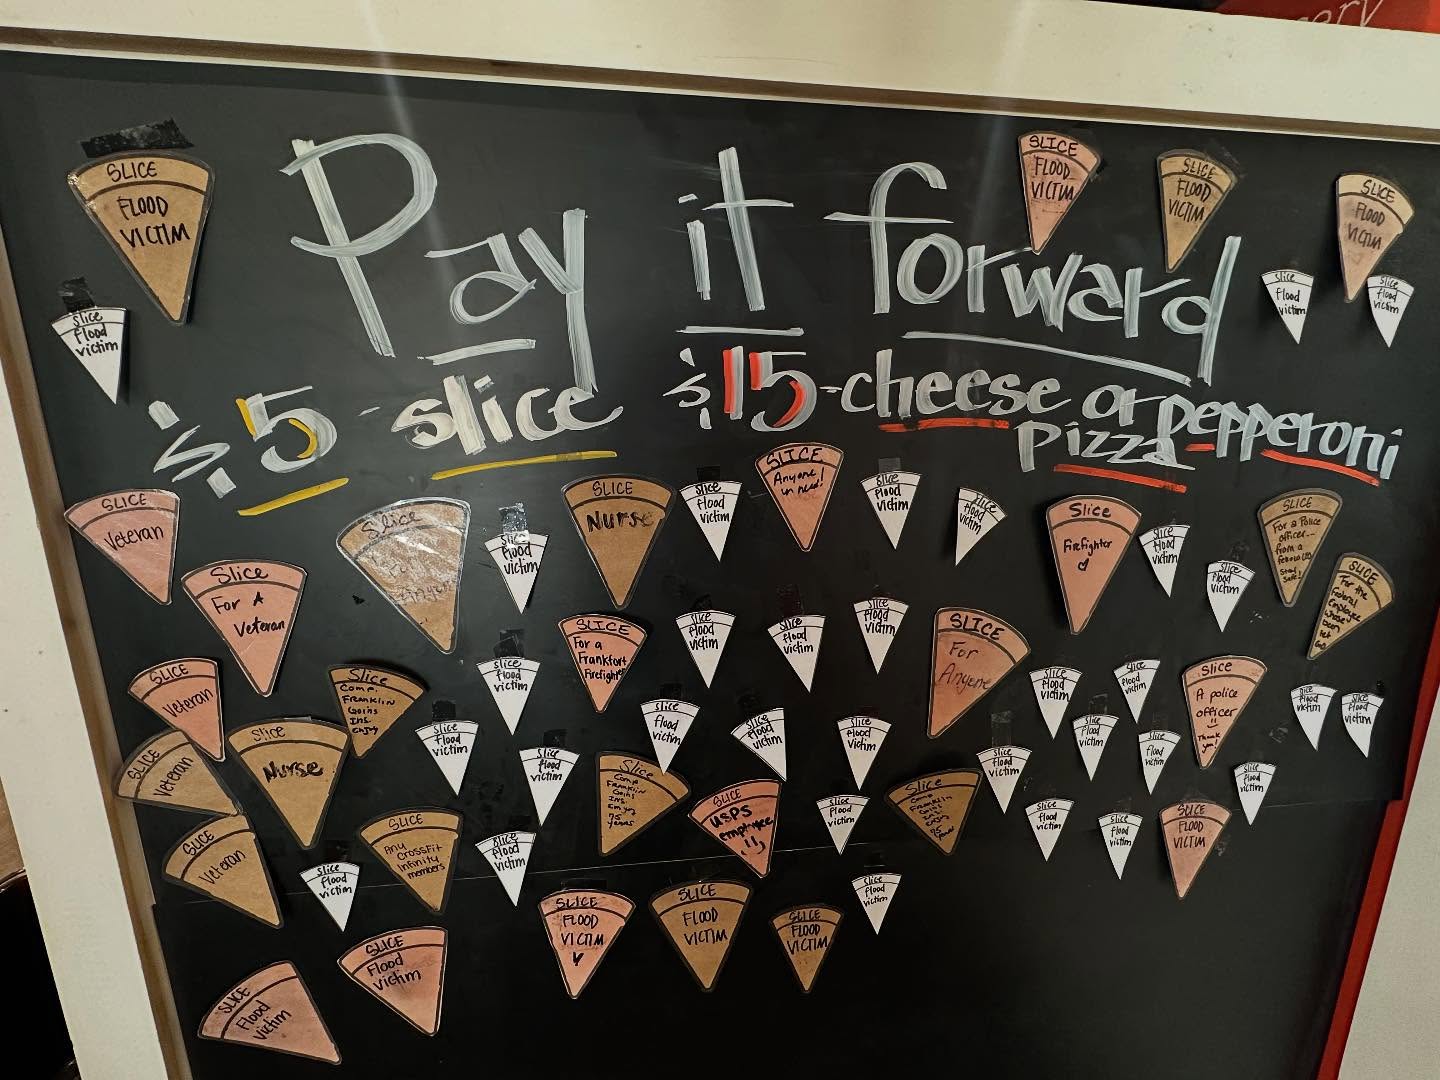 ery
SLICE
FLOOD
VICTIM
Pay it forward
SLICE
FLOOD
VICTIM
SLICE
FLOOD
VICTIM
SLICE
FLOOD
VICTIM
Slice
flood
victim
Slice
flood
victim
Slice
flood
victim
$5-slice
$15-cheese or pepperoni
pizza
SLICE
Veteran
Slice
Slice
flood
victim
SLICE
Nurse
Slice
flood
victim
SLICE
Anyone
in need!
Slice
flood
victim
Slice
flood
victim
Slice
Firefighter
Slice
flood
victim
Slice
flood
victim
SLICE
For a Police
officer...
from a
fellow
Stay
Safe!
SLICE
For the
Federal
Employee
whose
been
let
go.
Slice
For A
Veteran
SLICE
For a
Frankfort
Firefighter
Slice
flood
victim
Slice
flood
victim
Slice
flood
victim
SLICE
For
Anyone
SLICE
Veteran
Slice
Comp.
Franklin
Goins
Ins.
Enjoy
Slice
flood
victim
Slice
flood
victim
Slice
flood
victim
Slice
A police
officer
Thank
you!
Slice
flood
victim
Slice
flood
victim
SLICE
Veteran
Slice
Nurse
Slice
flood
victim
Slice
flood
victim
Slice
flood
victim
Slice
flood
victim
Slice
flood
victim
Slice
flood
victim
Slice
flood
victim
Slice
flood
victim
Slice
flood
victim
Slice
Comp
Franklin
Goins
Ins.
Enjoy
75
years
SLICE
USPS
employee
Slice
flood
victim
Slice
Comp
Franklin
Goins
Ins.
Enjoy
75
years
Slice
flood
victim
Slice
flood
victim
SLICE
FLOOD
VICTIM
SLICE
Veteran
Slice
flood
victim
SLICE
Any
CrossFit
Infinity
members
Slice
flood
victim
SLICE
FLOOD
VICTIM
SLICE
FLOOD
VICTIM
SLICE
FLOOD
VICTIM
Slice
flood
victim
SLICE
Flood
victim
SLICE
Flood
victim